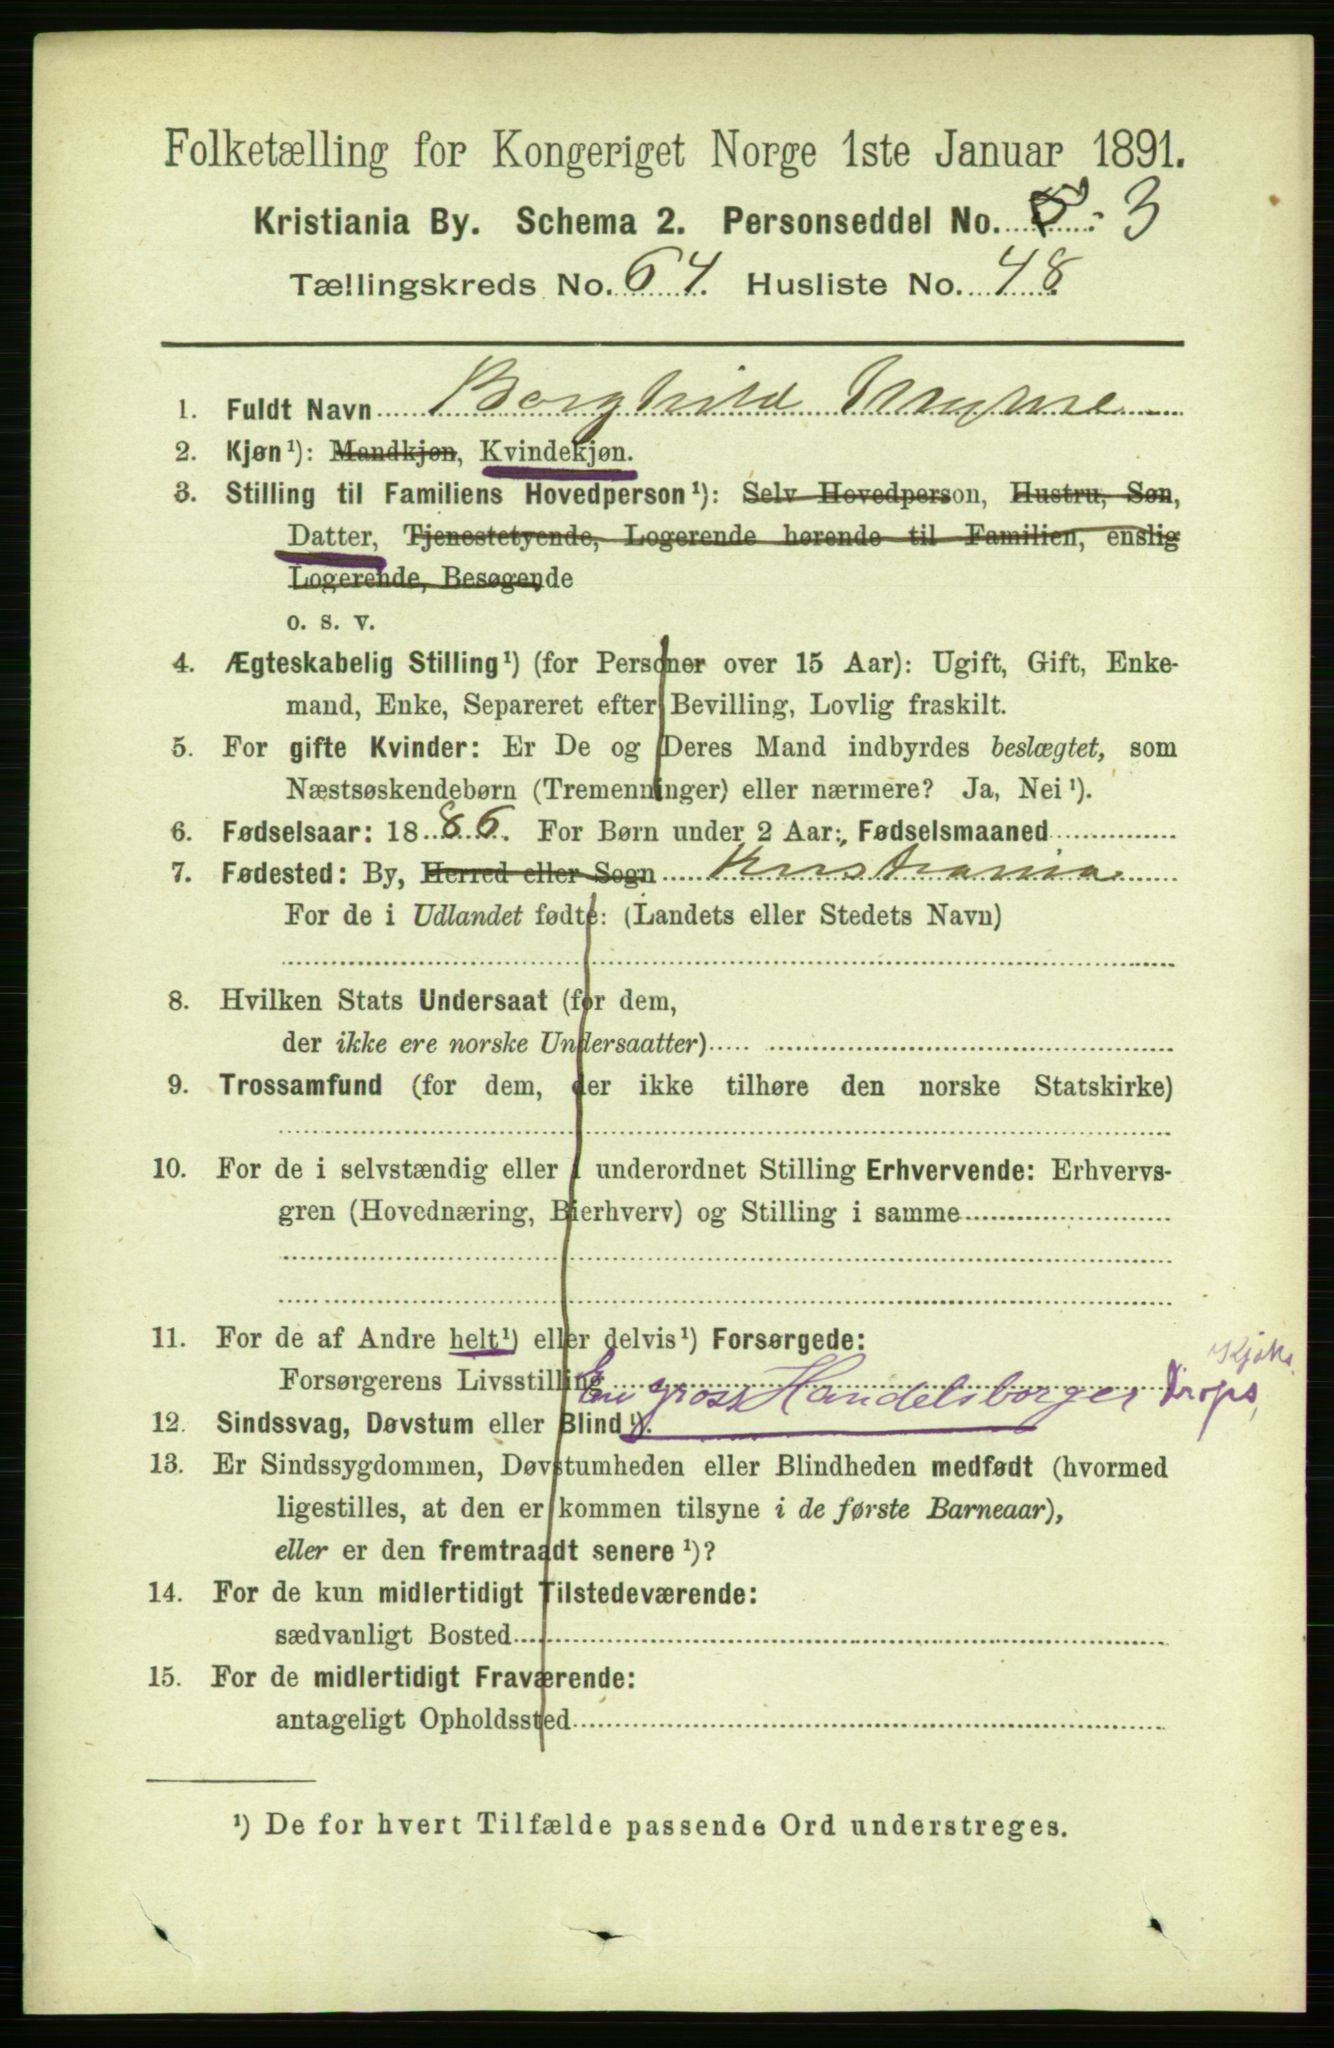 Folketælling for Kongeriget Norge 1ste Januar 1891.
Kristiania By. Schema 2. Personseddel No. 3
Tællingskreds No. 64. Husliste No. 48
1. Fuldt Navn Borghild
2. Kjøn¹): Mandkjøn, Kvindekjøn.
3. Stilling til Familiens Hovedperson¹): Selv Hovedperson, Hustru, Søn,
Datter, Tjenestetyende, Logerende hørende til Familien, enslig
Logerende, Besøgende
o. s. v.
4. Ægteskabelig Stilling¹) (for Personer over 15 Aar): Ugift, Gift, Enke-
mand, Enke, Separeret efter Bevilling, Lovlig fraskilt.
5. For gifte Kvinder: Er De og Deres Mand indbyrdes beslægtet, som
Næstsøskendebørn (Tremenninger) eller nærmere? Ja, Nei¹).
6. Fødselsaar: 1886. For Børn under 2 Aar: Fødselsmaaned
7. Fødested: By, Herred eller Sogn Kristiania
For de i Udlandet fødte: (Landets eller Stedets Navn)
8. Hvilken Stats Undersaat (for dem,
der ikke ere norske Undersaatter)
9. Trossamfund (for dem, der ikke tilhøre den norske Statskirke)
10. For de i selvstændig eller i underordnet Stilling Erhvervende: Erhvervs-
gren (Hovednæring, Bierhverv) og Stilling i samme
11. For de af Andre helt¹) eller delvis¹) Forsørgede:
Forsørgerens Livsstilling En gross Handelsborger
12. Sindssvag, Døvstum eller Blind¹).
13. Er Sindssygdommen, Døvstumheden eller Blindheden medfødt (hvormed
ligestilles, at den er kommen tilsyne i de første Barneaar),
eller er den fremtraadt senere¹)?
14. For de kun midlertidigt Tilstedeværende:
sædvanligt Bosted
15. For de midlertidigt Fraværende:
antageligt Opholdssted
¹) De for hvert Tilfælde passende Ord understreges.